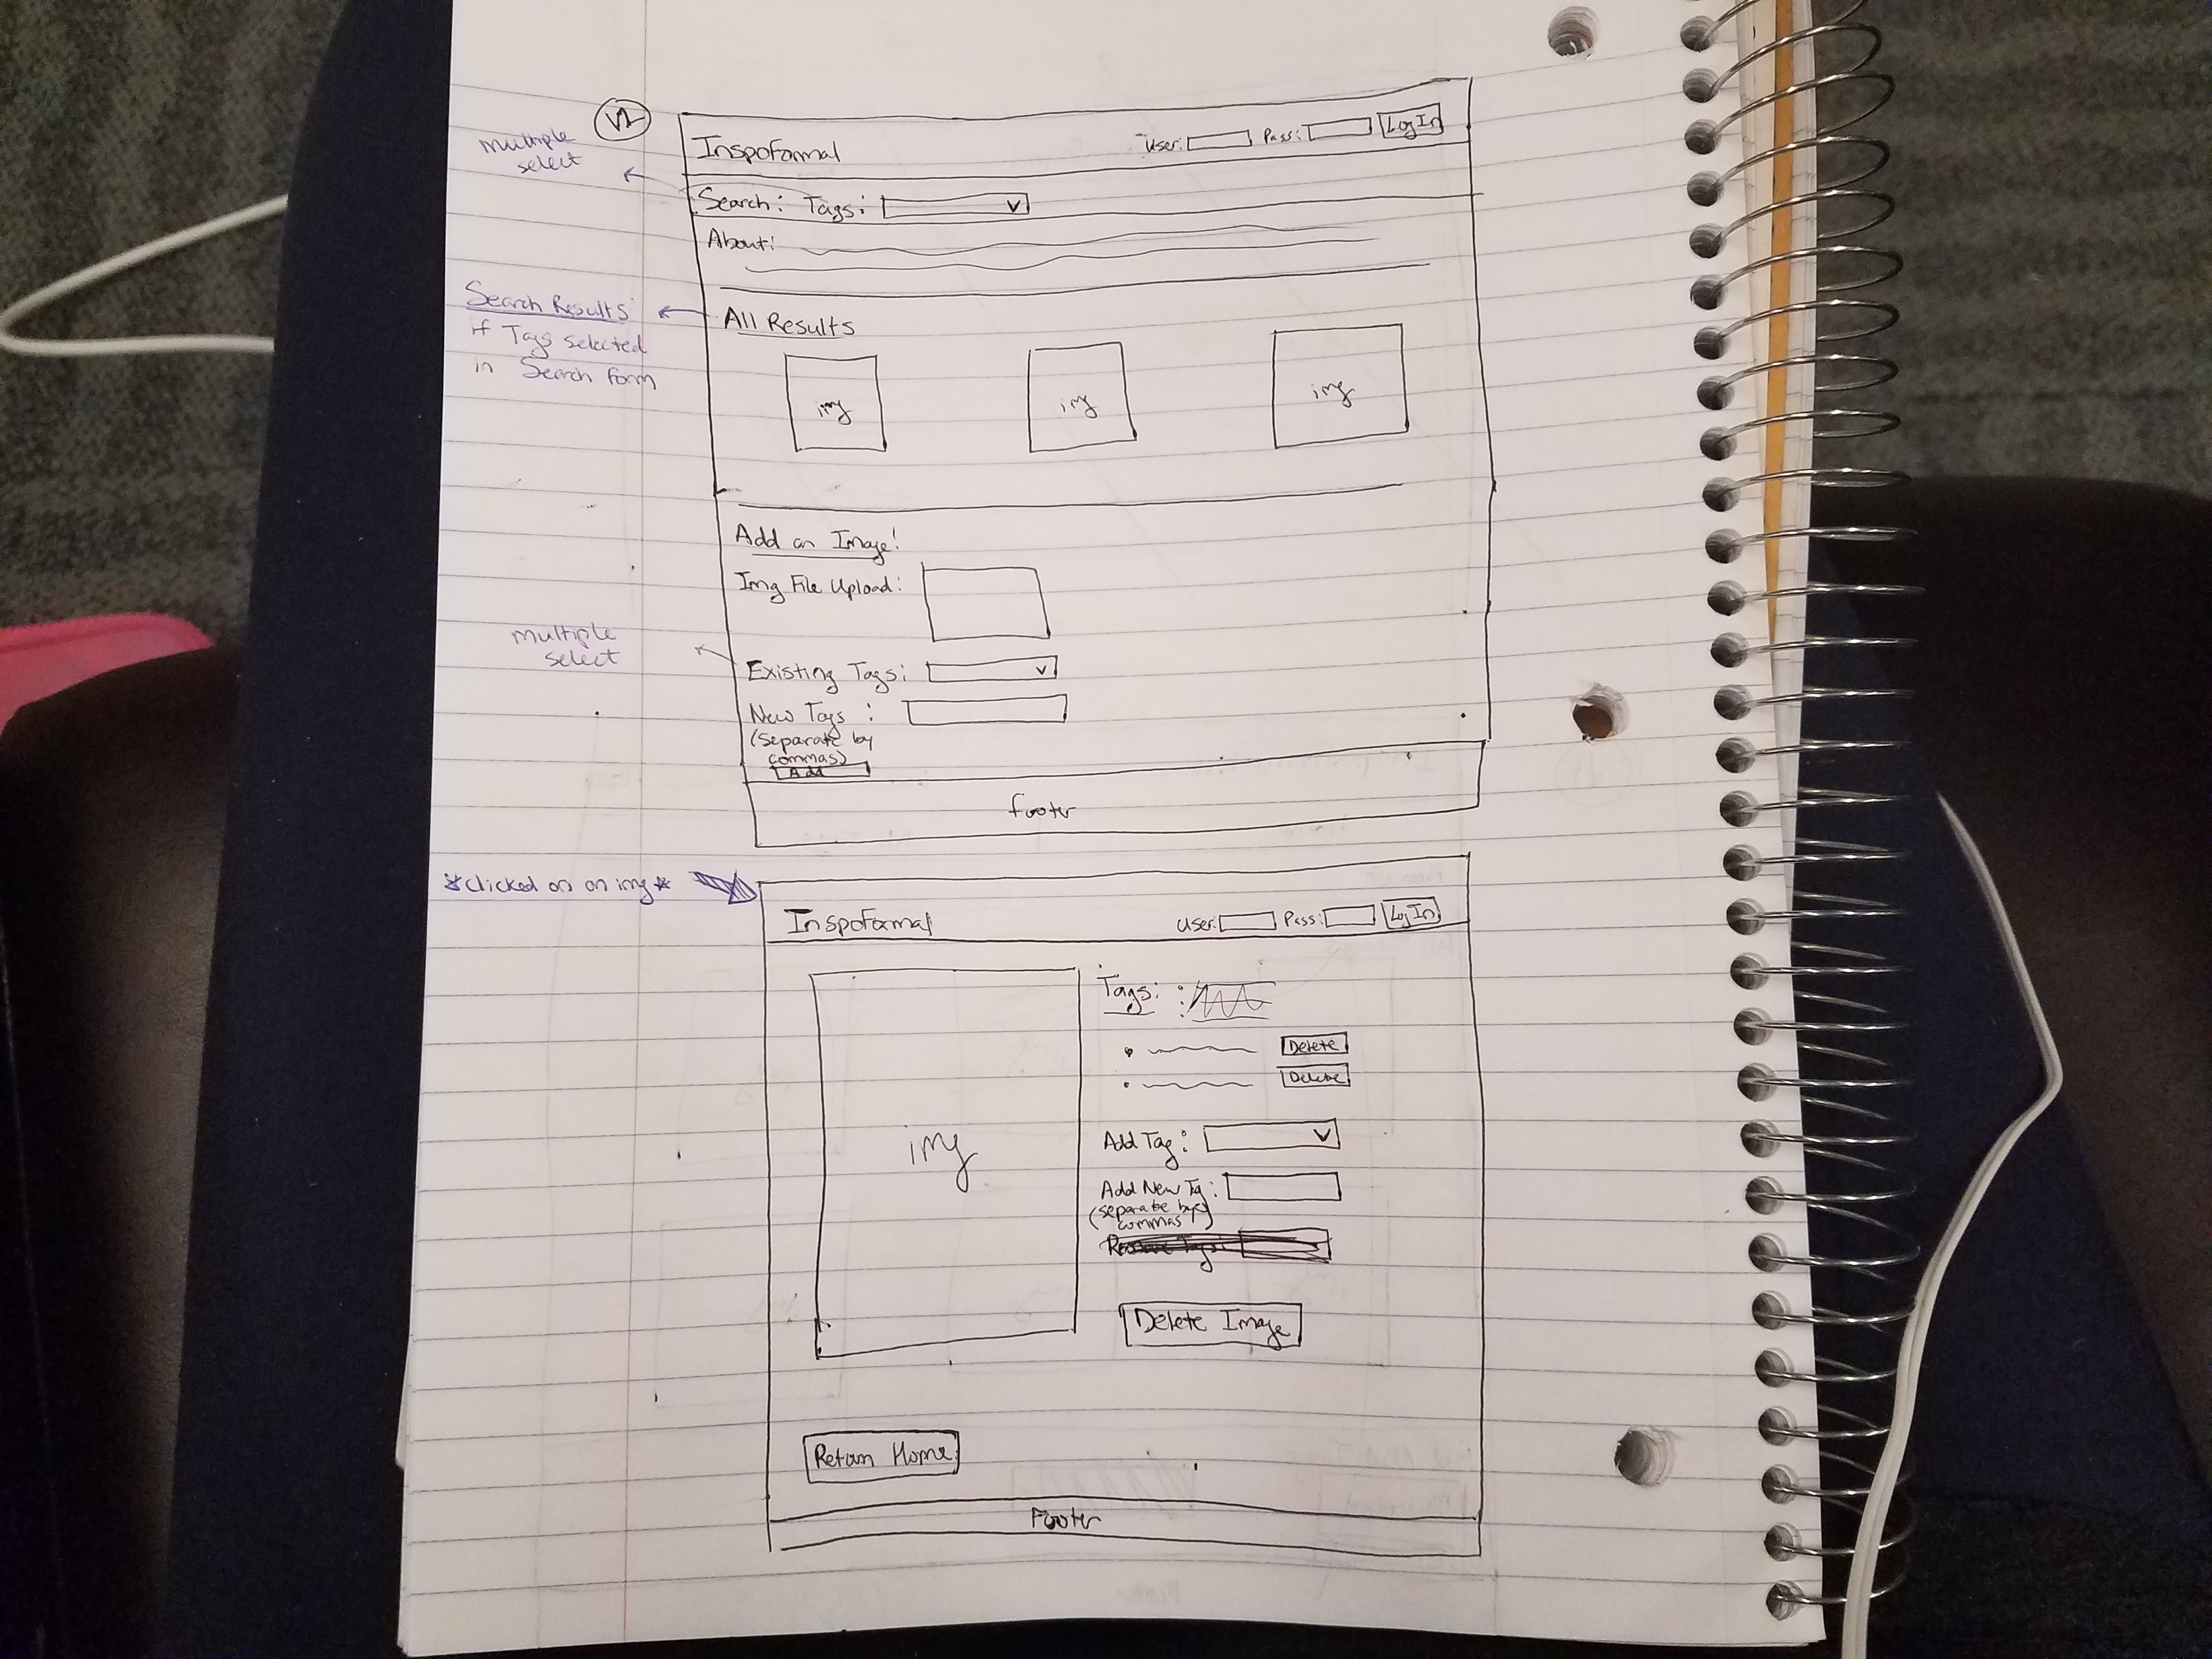 V1
Multiple
select
Inspoformal
User:
Pass:
Log In
Search: Tags:
About:
Search Results
if Tags selected
in Search form
All Results
img
img
img
Add an Image!
Img File Upload:
Multiple
select
Existing Tags:
New Tags :
(Separate by
commas)
Add
footer
*Clicked on an img*
Inspoformal
User:
Pass:
Log In
Tags:
Delete
Delete
img
Add Tag:
Add New Tag:
(separate by
commas)
Remove Tags:
Delete Image
Return Home
Footer